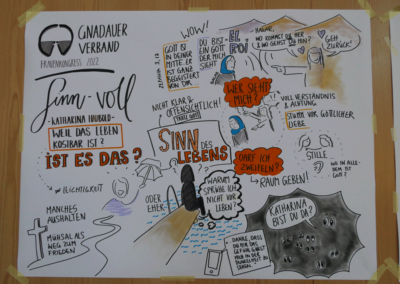 GNADAUER
VERBAND
FRAUENKONGRESS 2022
Sinn-voll
-KATHARINA
WEIL DAS LEBEN
KOSTBAR IST?
IST ES DAS?
LEICHTIGKEIT
MANCHES
AUSHALTEN
MÜHSAL ALS
WEG ZUM
FRIEDEN
WOW!
GOTT IST
IN DEINER
MITTE. ER
IST GANZ
BEGEISTERT
VON DIR
DU BIST
EIN GOTT
DER MICH
SIEHT
EL
ROI
HAGAR,
WO KOMMST DU HER
& WO GEHST DU HIN?
GEH
ZURÜCK!
WER SIEHT
MICH?
NICHT KLAR &
OFFENSICHTLICH!
VOLL VERSTÄNDNIS
& ACHTUNG
STUR VOR GÖTTLICHER
LIEBE
SINN DES
LEBENS
DARF ICH
ZWEIFELN?
RAUM GEBEN!
STILLE
WO IN ALLE-
DEM IST
GOTT?
ODER
EHER
WARUM
SPRÜHE ICH
NICHT VOR
LEBEN?
KATHARINA
BIST DU DA?
DANKE, DASS
DU MIR DAS
GEFÜHL GIBST